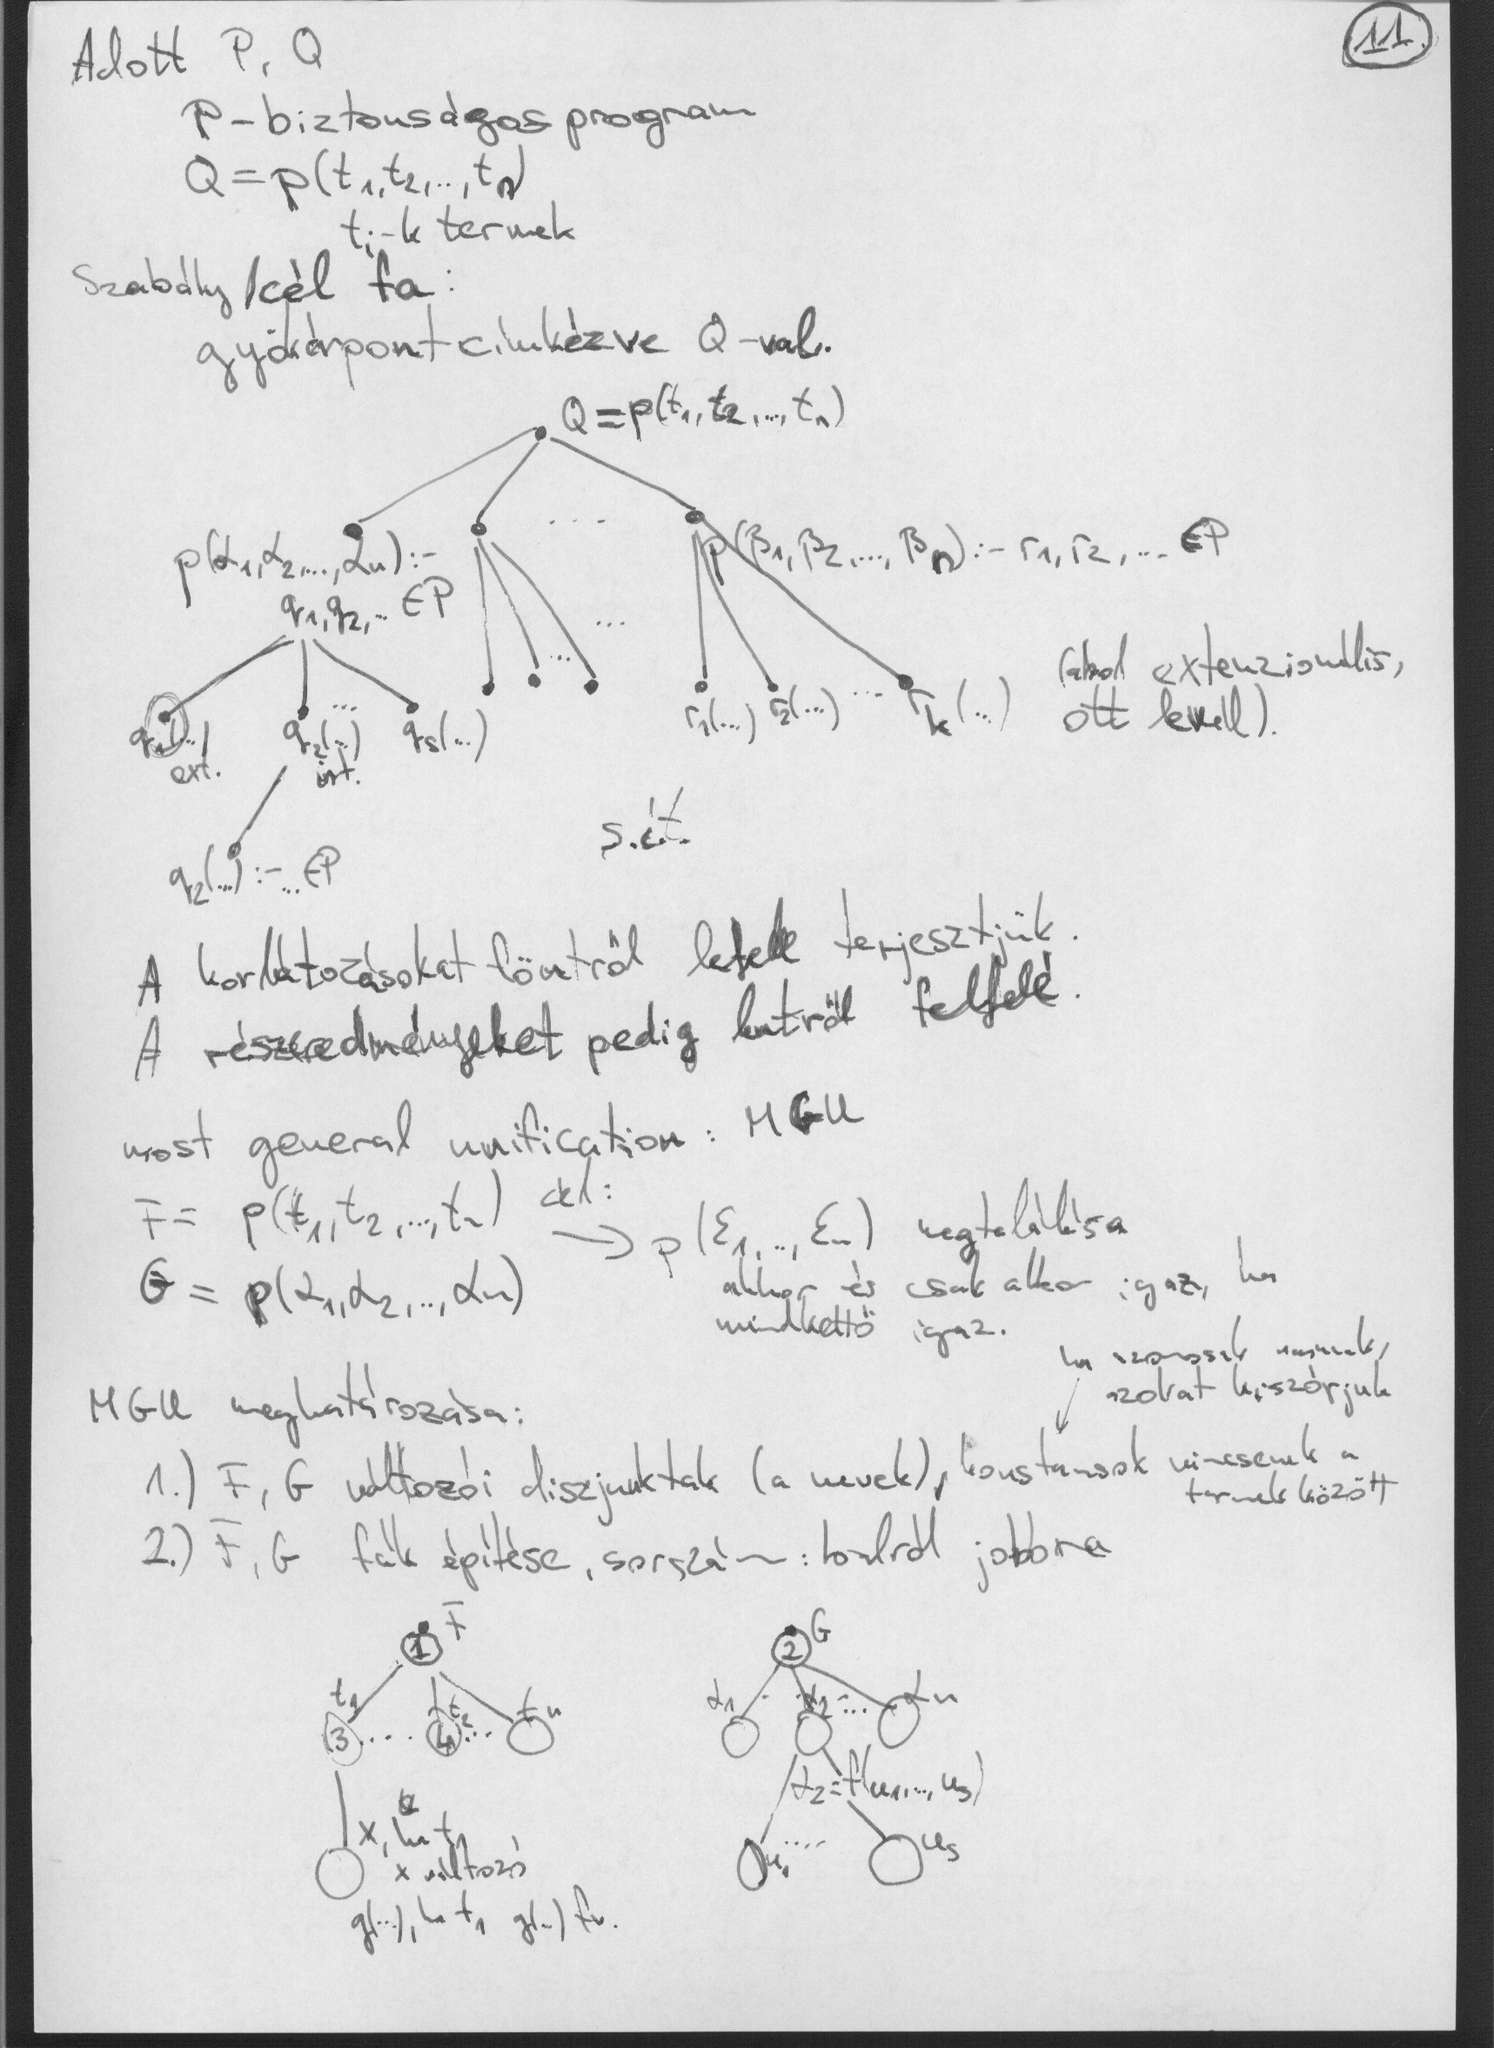 11.
Adott P, Q
P – biztonságos program
Q = p(t₁, t₂, .., tₙ)
tᵢ-k termek
Szabály/cél fa:
gyökérpont címkézve Q-val.
Q = p(t₁, t₂, ..., tₙ)
p(α₁, α₂, ..., αₙ) :-
q₁, q₂, .. ∈P
....
p(β₁, β₂, ..., βₙ) :- r₁, r₂, ... ∈P
...
q₁(...)
ext.
q₂(...)
int.
...
qₛ(...)
...
r₁(...) r₂(...) ... rₖ(...)
(ahol extenzionális,
ott levél).
q₂(...) :- ... ∈P
s.í.t.
A korlátozásokat föntről lefele terjesztjük.
A részeredményeket pedig lentről felfelé.
most general unification: MGU
F = p(t₁, t₂, .., tₙ) cél:
→ p(ε₁, .., εₙ) megtalálása
G = p(α₁, α₂, .., αₙ)
akkor és csak akkor igaz, ha
mindkettő igaz.
ha azonosak vannak,
azokat kiszórjuk
MGU meghatározása:
1.) F, G változói diszjunktak (a nevek), konstansok nincsenek a
termek között
2.) F, G fák építése, sorszám: balról jobbra
1 F
t₁ t₂ tₙ
3 .... 4 ...
x, ha t₁
x változó
g(...), ha t₁ g(..) fv.
2 G
α₁ .. α₂ ... αₙ
α₂ = f(u₁, .., uₛ)
u₁ .... uₛ